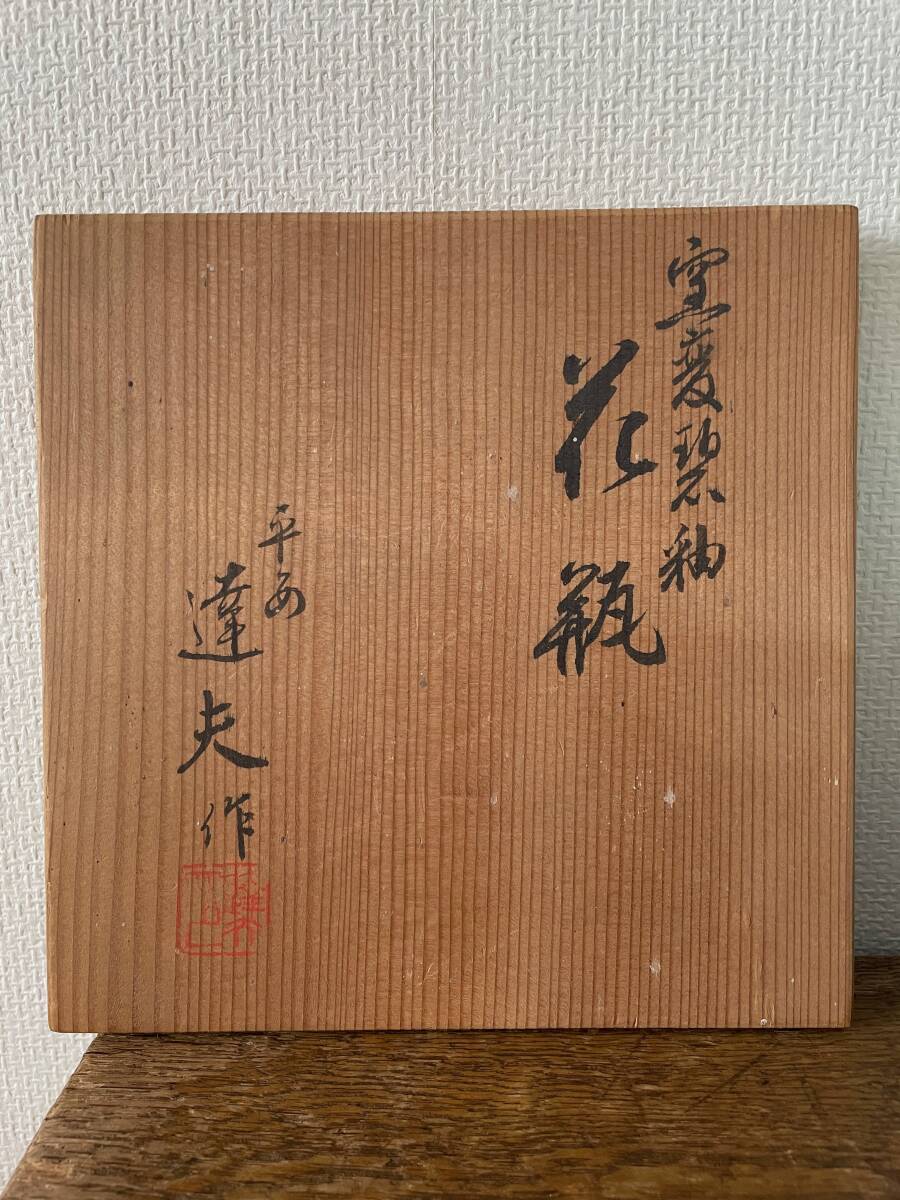 窯変碧釉
花瓶
平安
達夫作